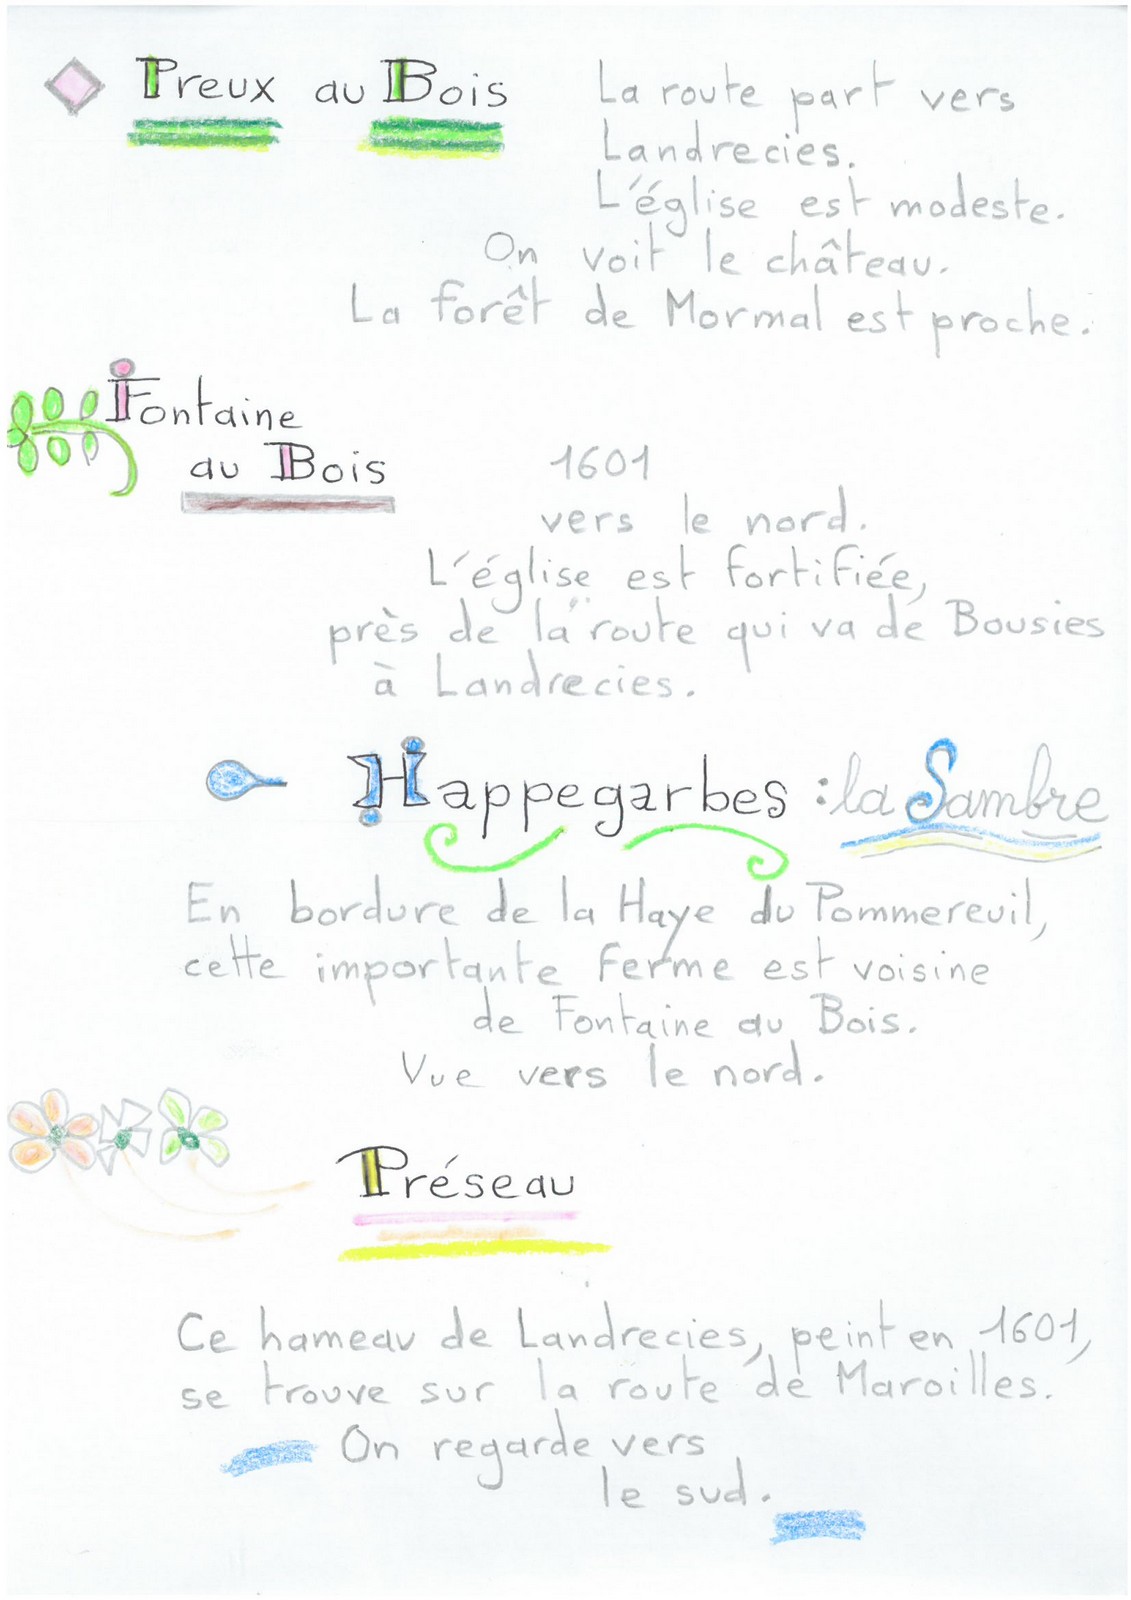 Preux au Bois
La route part vers
Landrecies.
L'église est modeste.
On voit le château.
La forêt de Mormal est proche.
Fontaine
au Bois
1601
vers le nord.
L'église est fortifiée,
près de la route qui va de Bousies
à Landrecies.
Happegarbes : la Sambre
En bordure de la Haye du Pommereuil,
cette importante ferme est voisine
de Fontaine au Bois.
Vue vers le nord.
Préseau
Ce hameau de Landrecies, peint en 1601,
se trouve sur la route de Maroilles.
On regarde vers
le sud.